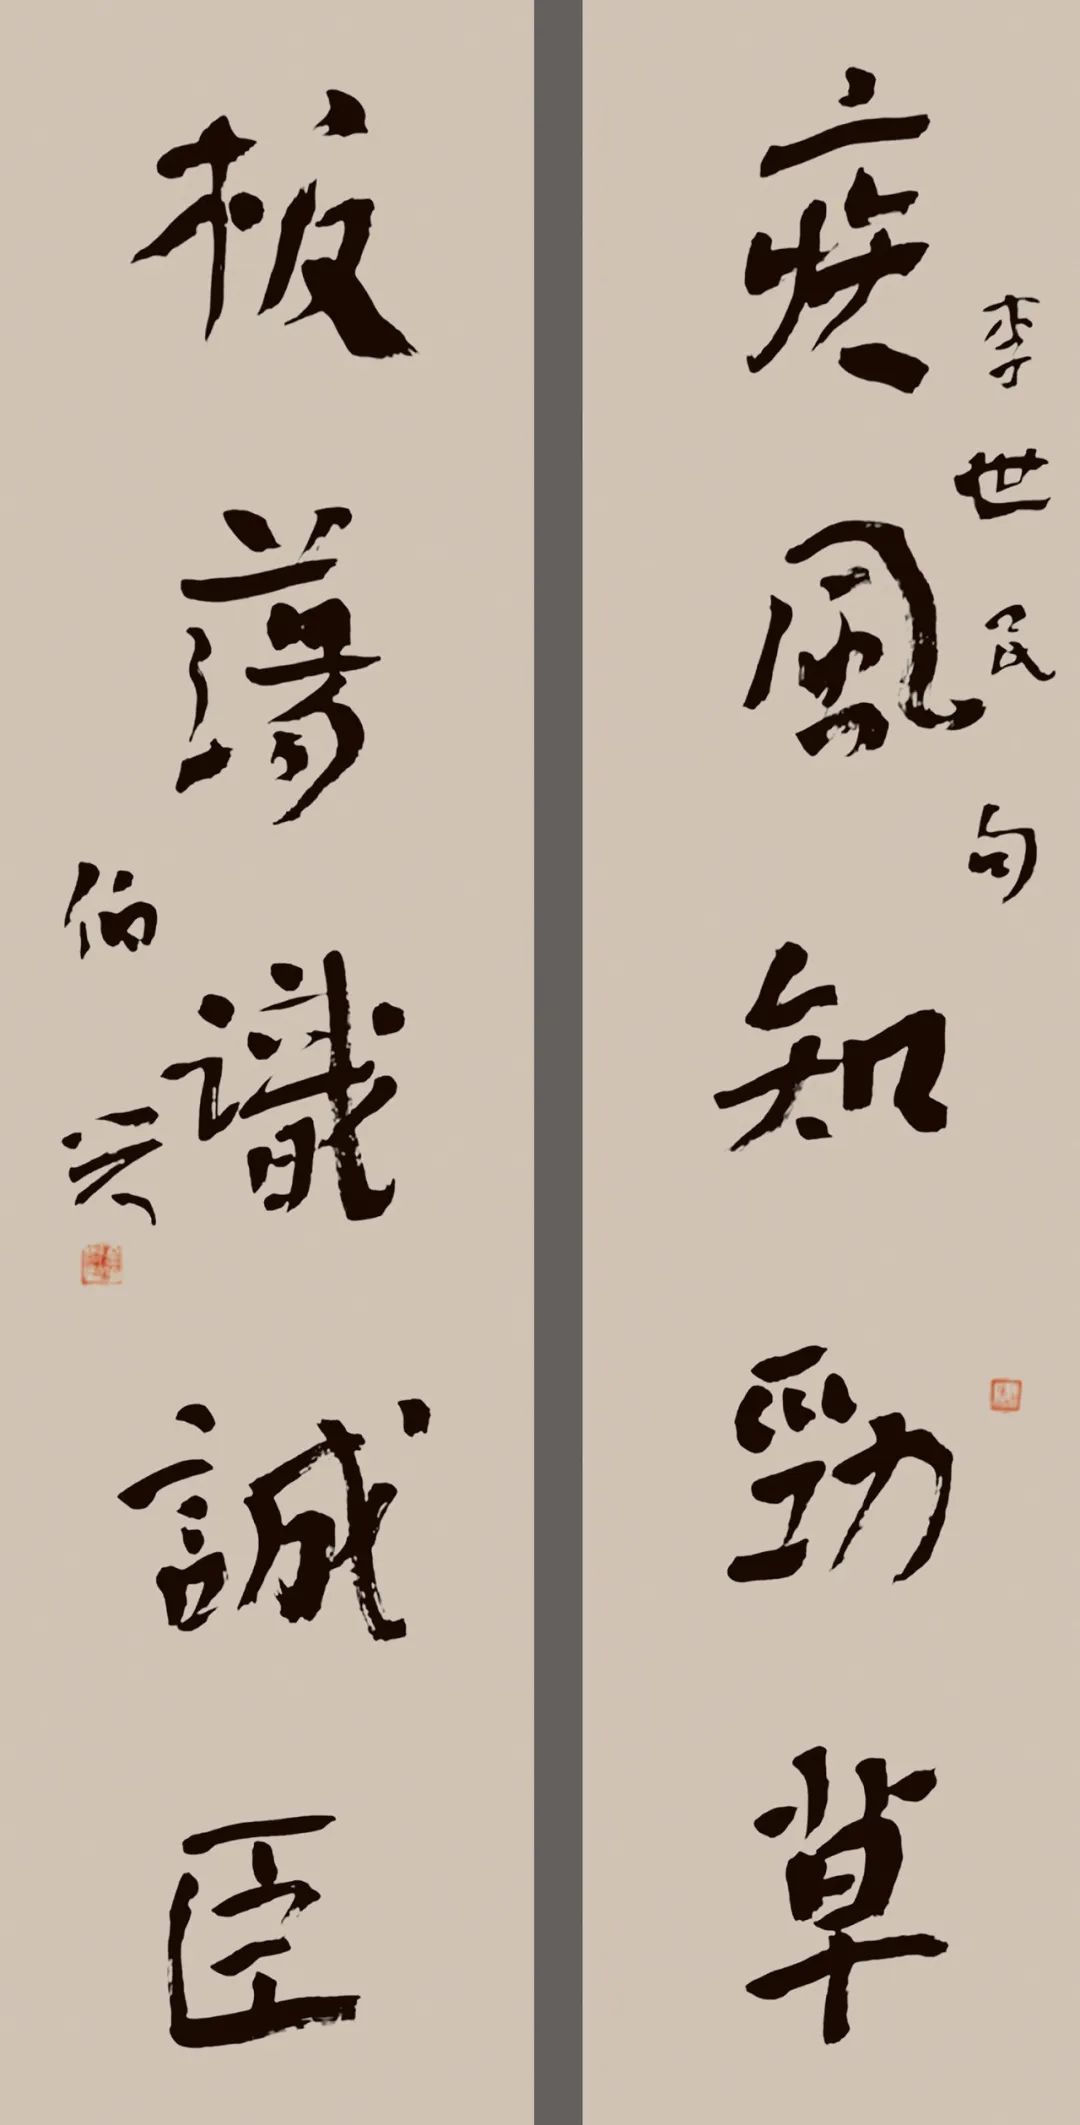 疾風知勁草
李世民句
板蕩識誠臣
伯兴